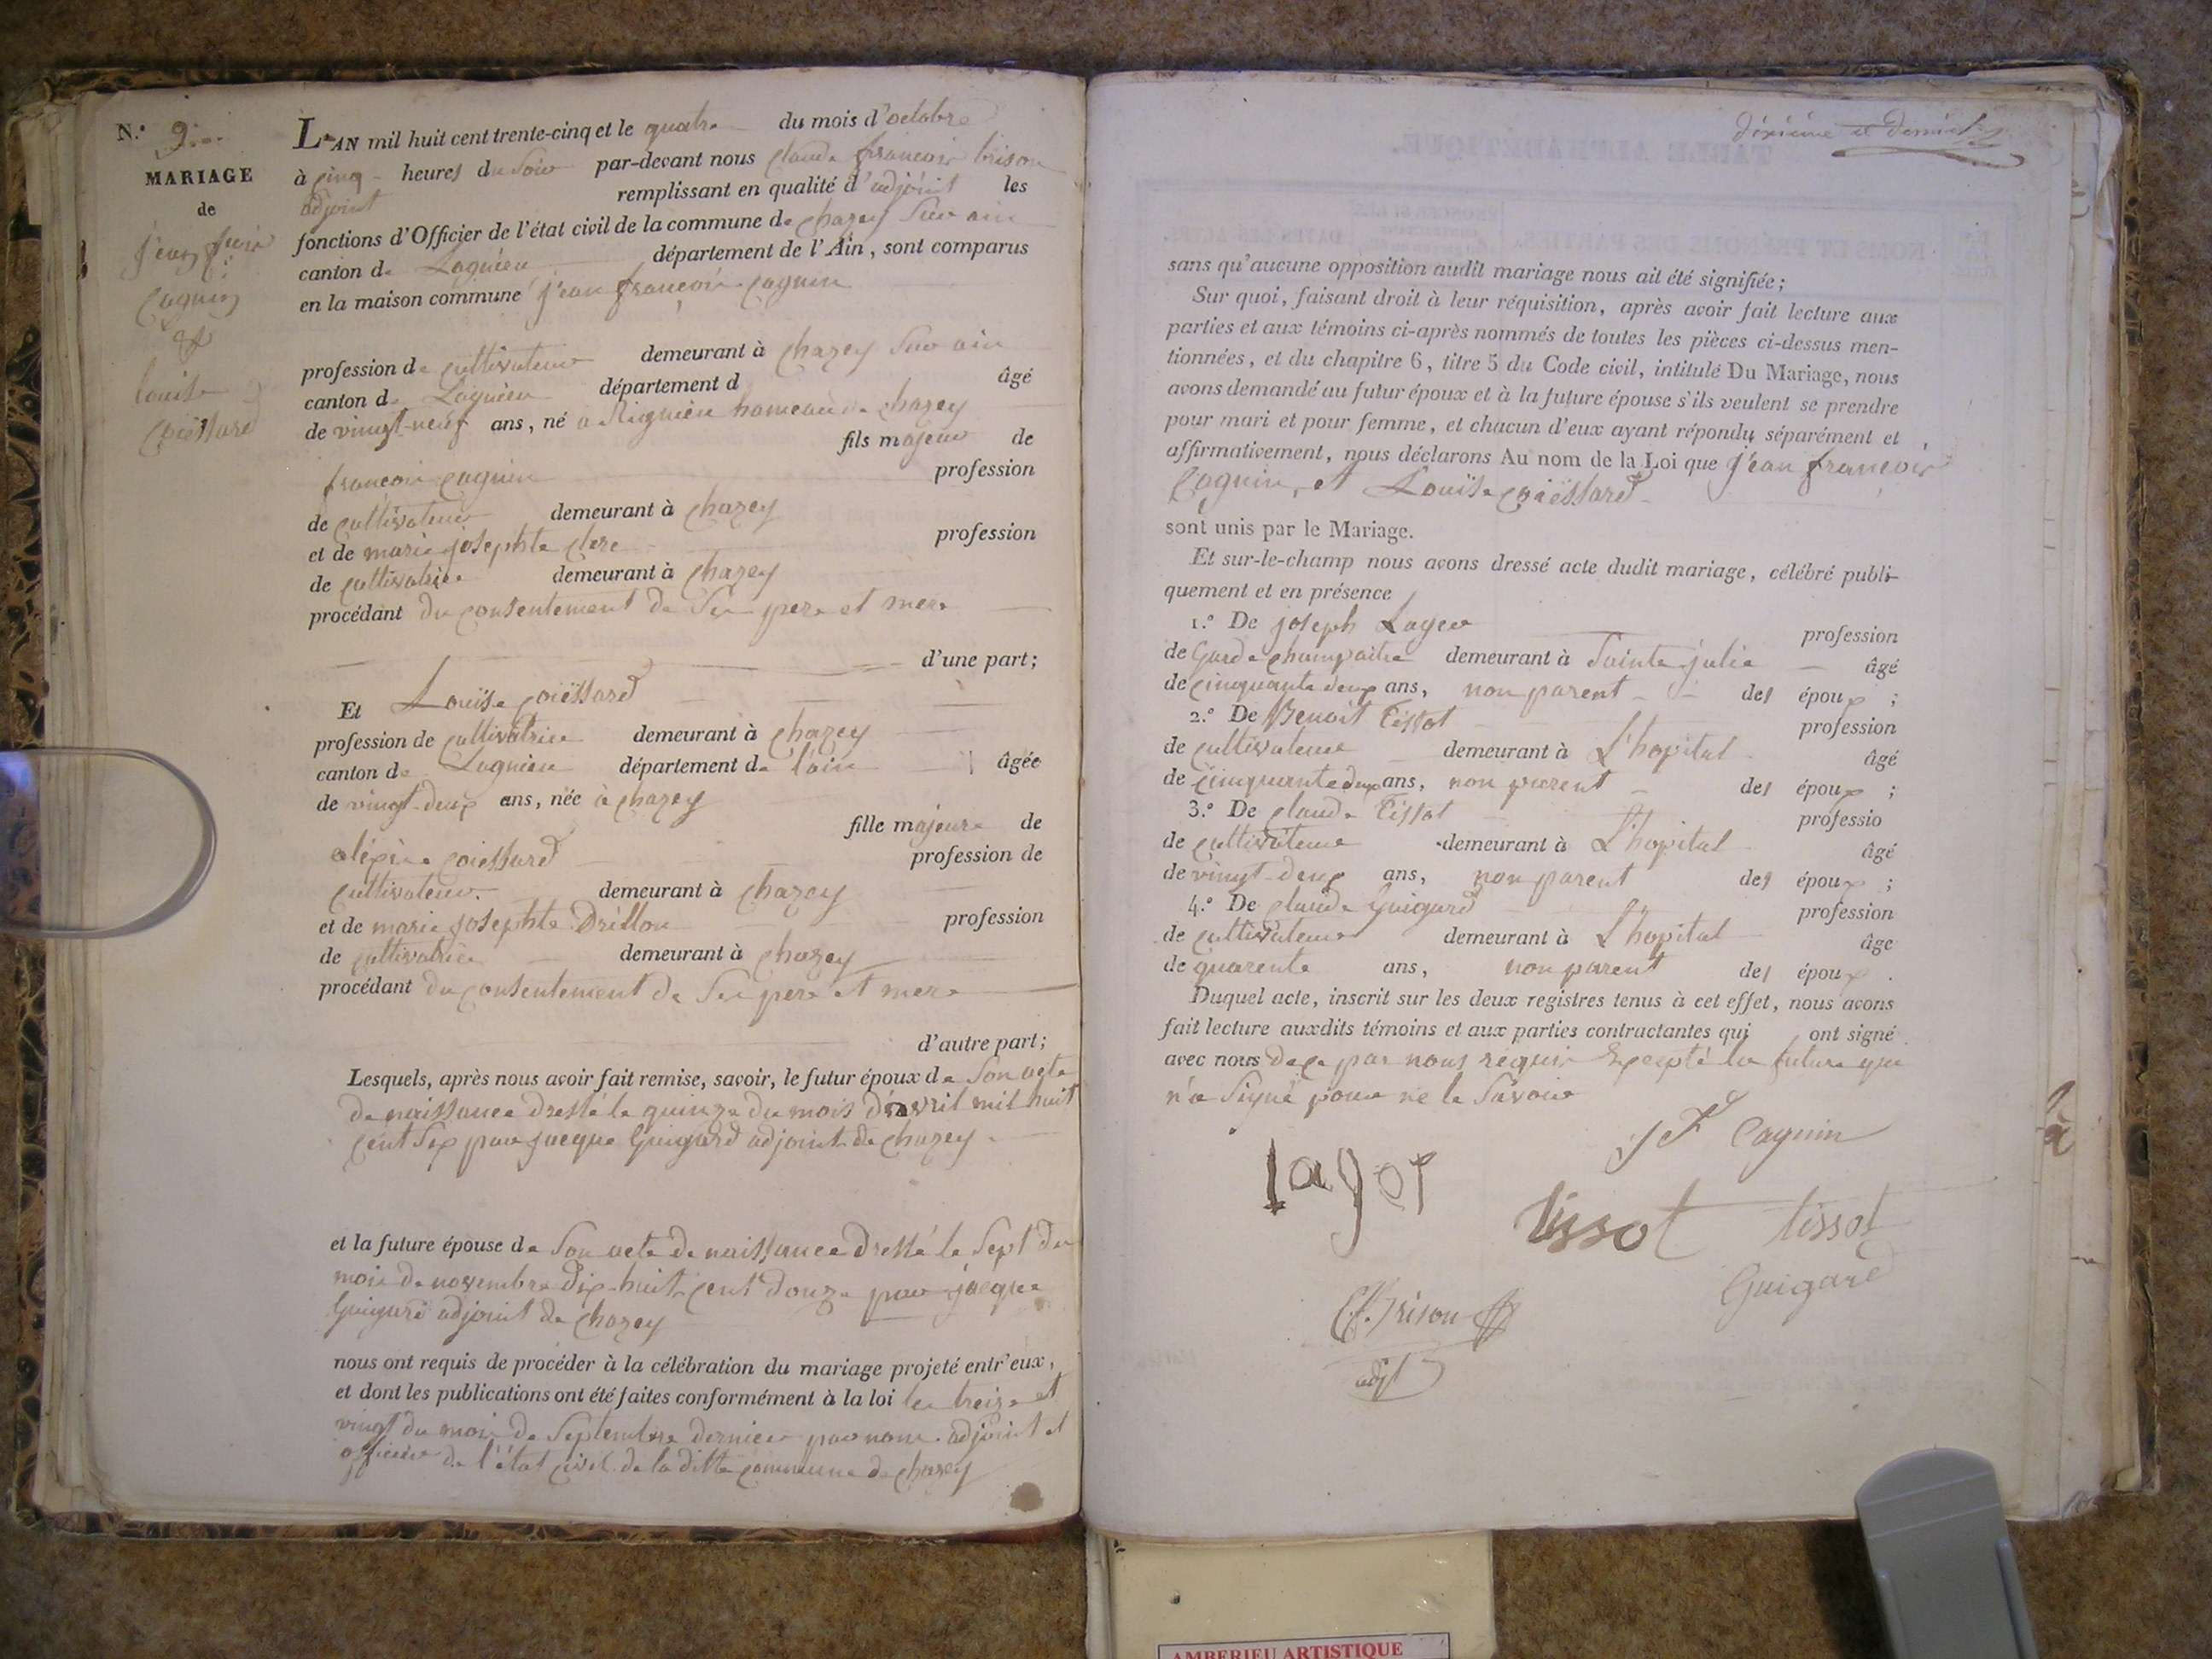 N.° 9
MARIAGE
de
jean fçois
Cagnin
&
louise
Coiëssard
L'AN mil huit cent trente-cinq et le quatre du mois d'octobre
à cinq heures du soir par-devant nous Claude françois brison
adjoint remplissant en qualité d'adjoint les
fonctions d'Officier de l'état civil de la commune de Chazey sur ain
canton de Lagnieu département de l'Ain, sont comparus
en la maison commune jean françois Cagnin
profession de Cultivateur demeurant à Chazey sur ain
canton de Lagnieu département d âgé
de vingt-neuf ans, né a Rignieu hameau de Chazey
fils majeur de
françois Cagnin profession
de Cultivateur demeurant à Chazey
et de marie josephte Clerc profession
de Cultivatrice demeurant à Chazey
procédant du Consentement de Ses pere et mere
d'une part;
Et Louïse Coiëssard
profession de Cultivatrice demeurant à Chazey
canton de Lagnieu département de l'ain âgée
de vingt-deux ans, née à Chazey
fille majeure de
Coiessard profession de
Cultivateur. demeurant à Chazey
et de marie josephte Drillon profession
de Cultivatrice demeurant à Chazey
procédant du Consentement de Ses pere et mere
d'autre part;
Lesquels, après nous avoir fait remise, savoir, le futur époux de Son acte
de naissance dressé le quinze du mois d'avril mil huit
Cent Six par jacque Guigard adjoint de Chazey
et la future épouse de Son acte de naissance dressé le Sept du
mois de novembre dix-huit Cent douze par jacque
Guigard adjoint de Chazey
nous ont requis de procéder à la célébration du mariage projeté entr'eux,
et dont les publications ont été faites conformément à la loi les treize et
vingt du mois de Septembre dernier par nous adjoint et
officier de l'état Civil de la ditte Commune de Chazey
dixième et dernier
sans qu'aucune opposition audit mariage nous ait été signifiée;
Sur quoi, faisant droit à leur réquisition, après avoir fait lecture aux
parties et aux témoins ci-après nommés de toutes les pièces ci-dessus men-
tionnées, et du chapitre 6, titre 5 du Code civil, intitulé Du Mariage, nous
avons demandé au futur époux et à la future épouse s'ils veulent se prendre
pour mari et pour femme, et chacun d'eux ayant répondu séparément et
affirmativement, nous déclarons Au nom de la Loi que jean françois
Cagnin, et Louïse Coiëssard
sont unis par le Mariage.
Et sur-le-champ nous avons dressé acte dudit mariage, célébré publi-
quement et en présence
1.° De joseph Lager profession
de Garde Champaitre demeurant à Sainte julie âgé
de Cinquante deux ans, non parent des époux ;
2.° De Benoit Tissot profession
de Cultivateur demeurant à L'hopital âgé
de Cinquante deux ans, non parent des époux ;
3.° De Claude Tissot professio
de Cultivateur demeurant à L'hopital âgé
de vingt-deux ans, non parent des époux ;
4.° De Claude Guigard profession
de Cultivateur demeurant à L'hopital âge
de quarente ans, non parent des époux .
Duquel acte, inscrit sur les deux registres tenus à cet effet, nous avons
fait lecture auxdits témoins et aux parties contractantes qui ont signé
avec nous de Ce par nous requis Excepté la future qui
n'a Signé pour ne le Savoir
J F Cagnin
lager
tissot tissot
Guigard
C.f. Brison
adjt
AMBERIEU ARTISTIQUE